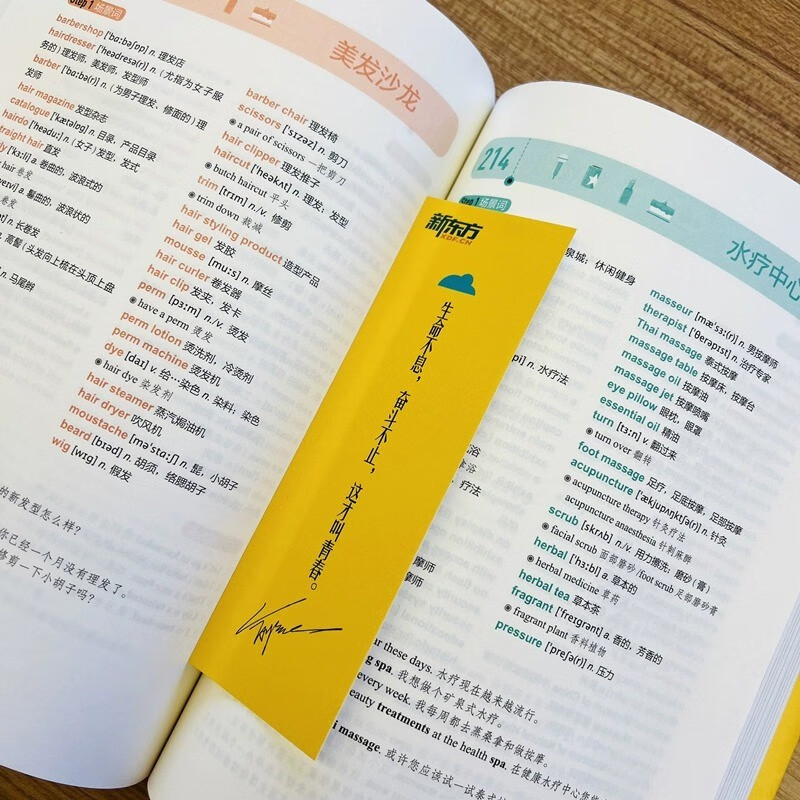 Step 1 场景词
美发沙龙
barbershop ['bɑːbəʃɒp] n. 理发店
hairdresser ['heədresə(r)] n. (尤指为女子服
务的) 理发师，美发师，发型师
barber ['bɑːbə(r)] n. (为男子理发、修面的) 理
发师
hair magazine 发型杂志
catalogue ['kætəlɒɡ] n. 目录，产品目录
hairdo ['heəduː] n. (女子) 发型，发式
straight hair 直发
a. 卷曲的，波浪式的
hair 卷发
a. 鬈曲的，波浪状的
卷发
n. 长卷发
高髻 (头发向上梳在头顶上盘
n. 马尾辫
barber chair 理发椅
scissors ['sɪzəz] n. 剪刀
a pair of scissors 一把剪刀
hair clipper 理发推子
haircut ['heəkʌt] n. 理发；发型
butch haircut 平头
trim [trɪm] n./v. 修剪
trim down 裁减
hair styling product 造型产品
hair gel 发胶
mousse [muːs] n. 摩丝
hair curler 卷发器
hair clip 发夹，发卡
perm [pɜːm] n./v. 烫发
have a perm 烫发
perm lotion 烫洗剂，冷烫剂
perm machine 烫发机
dye [daɪ] v. 给…染色 n. 染料，染色
hair dye 染发剂
hair steamer 蒸汽焗油机
hair dryer 吹风机
moustache [mə'stɑːʃ] n. 髭，小胡子
beard [bɪəd] n. 胡须，络腮胡子
wig [wɪɡ] n. 假发
的新发型怎么样？
你已经一个月没有理发了。
修剪一下小胡子吗？
新东方
XDF.CN
生命不息，奋斗不止，这才叫青春。
214
水疗中心
Step 1 场景词
泉城；休闲健身
n. 水疗法
浴
疗法
摩师
摩师
masseur [mæ'sɜː(r)] n. 男按摩师
therapist ['θerəpɪst] n. 治疗专家
Thai massage 泰式按摩
massage table 按摩床，按摩台
massage oil 按摩油
massage jet 按摩喷嘴
eye pillow 眼枕，眼罩
essential oil 精油
turn [tɜːn] v. 翻过来
turn over 翻转
foot massage 足疗，足底按摩，足部按摩
acupuncture ['ækjupʌŋktʃə(r)] n. 针灸
acupuncture therapy 针灸疗法
acupuncture anaesthesia 针刺麻醉
scrub [skrʌb] n./v. 用力擦洗；磨砂 (膏)
facial scrub 面部磨砂 /foot scrub 足部磨砂膏
herbal ['hɜːbl] a. 草本的
herbal medicine 草药
herbal tea 草本茶
fragrant ['freɪɡrənt] a. 香的，芳香的
fragrant plant 香料植物
pressure ['preʃə(r)] n. 压力
these days. 水疗现在越来越流行。
spa. 我想做个矿泉式水疗。
every week. 我每周都去蒸桑拿和做按摩。
beauty treatments at the health spa. 在健康水疗中心您
massage, 或许您应该试一试泰式